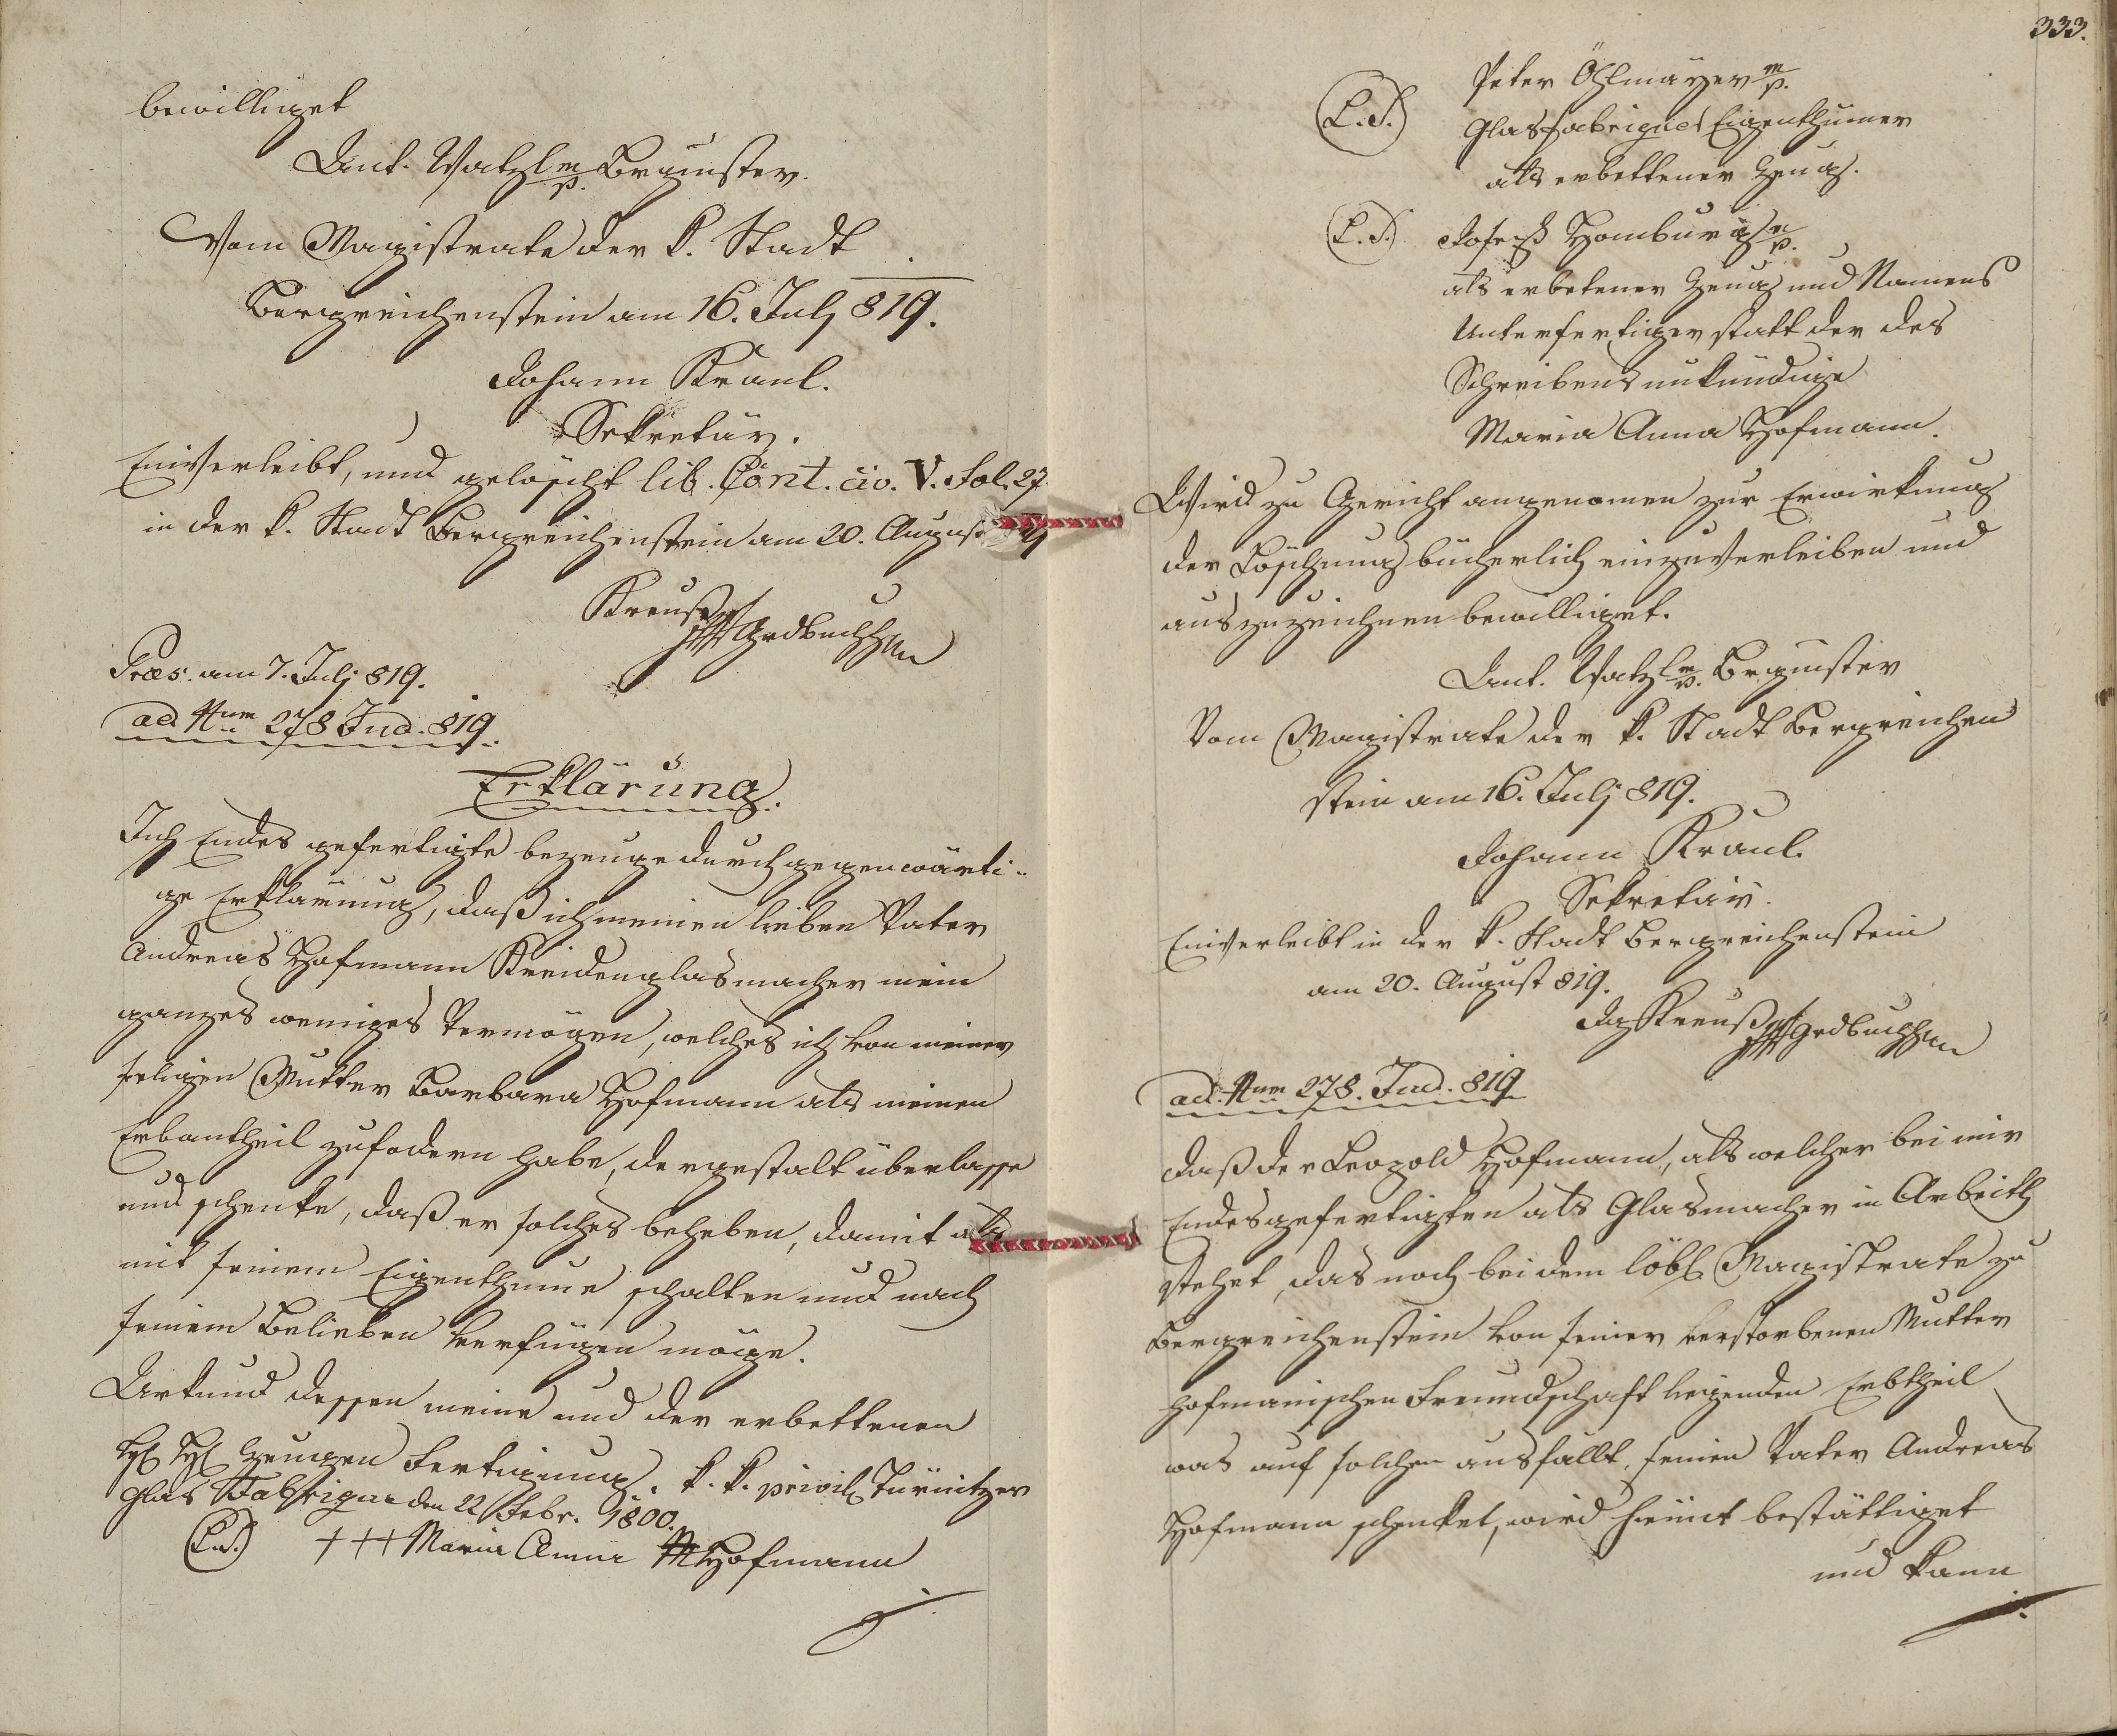 bewilliget
Ant. Watzl mp. Brgmster.
Vom Magistrate der k. Stadt
Bergreichenstein am 16. Julj 819.
Johann Kraul.
Sekretär.
Einverleibt, und gelöscht lib. Cont. civ. V. Fol. 27
in der k. Stadt Bergreichenstein am 20. August
Grdbuchh
Præs. am 7. Julj 819.
ad Num 278 Jud. 819.
Erklärung.
Ich Endes gefertigte bezeuge durch gegenwärti-
ge Erklärung, daß ich meinen lieben Vater
Andreas Hofmann Kreidenglasmacher mein
ganzes weniges Vermögen, welches ich von meiner
seligen Mutter Barbara Hofmann als meinen
Erbantheil zufodern habe, dergestalt überlasse
und schenke, daß er solches beheben, damit als
mit seinem Eigenthume schalten und nach
seinem Belieben verfügen möge.
Urkund dessen meine und der erbettenen
H. H. Zeugen Fertigung. k. k. privil.
Glas Fabrique den 22 Febr. 1800.
(L.S.) +++ Maria Anna Hofmann
333.
Peter Öhlmayer mp.
(L.S.) Glasfabriques Eigenthümer
als erbettener Zeug.
(L.S.) Joseph Homburg mp.
als erbetener Zeug und Namens
Unterfertiger statt der des
Schreibens unkündige
Maria Anna Hofmann.
Wird zu Gericht angenomen zur Erwirkung
der Löschung bücherlich einzuverleiben und
auszuzeichnen bewilliget.
Ant. Watzl mp. Brgmster
Vom Magistrate der k. Stadt Bergreichen
stein am 16. Julj 819.
Johann Kraul.
Sekretär.
Einverleibt in der k. Stadt Bergreichenstein
am 20. August 819.
Grdbuchh
ad Num 278. Jud. 819
Daß der Leopold Hofmann, als welcher bei mir
Endesgefertigten als Glasmacher in Arbeith
stehet, das noch bei dem löbl. Magistrate zu
Bergreichenstein von seiner verstorbenen Mutter
hofmanischen Freundschaft liegenden Erbtheil
was auf solchen ausfällt, seinen Vater Andreas
Hofmann schenket, wird hiemit bestättiget
und kann